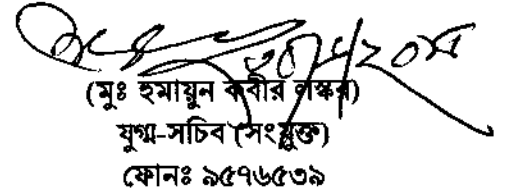 (মুঃ হুমায়ুন কবীর লস্কর)
যুগ্ম-সচিব (সংযুক্ত)
ফোনঃ ৯৫৭৬৫৩৯